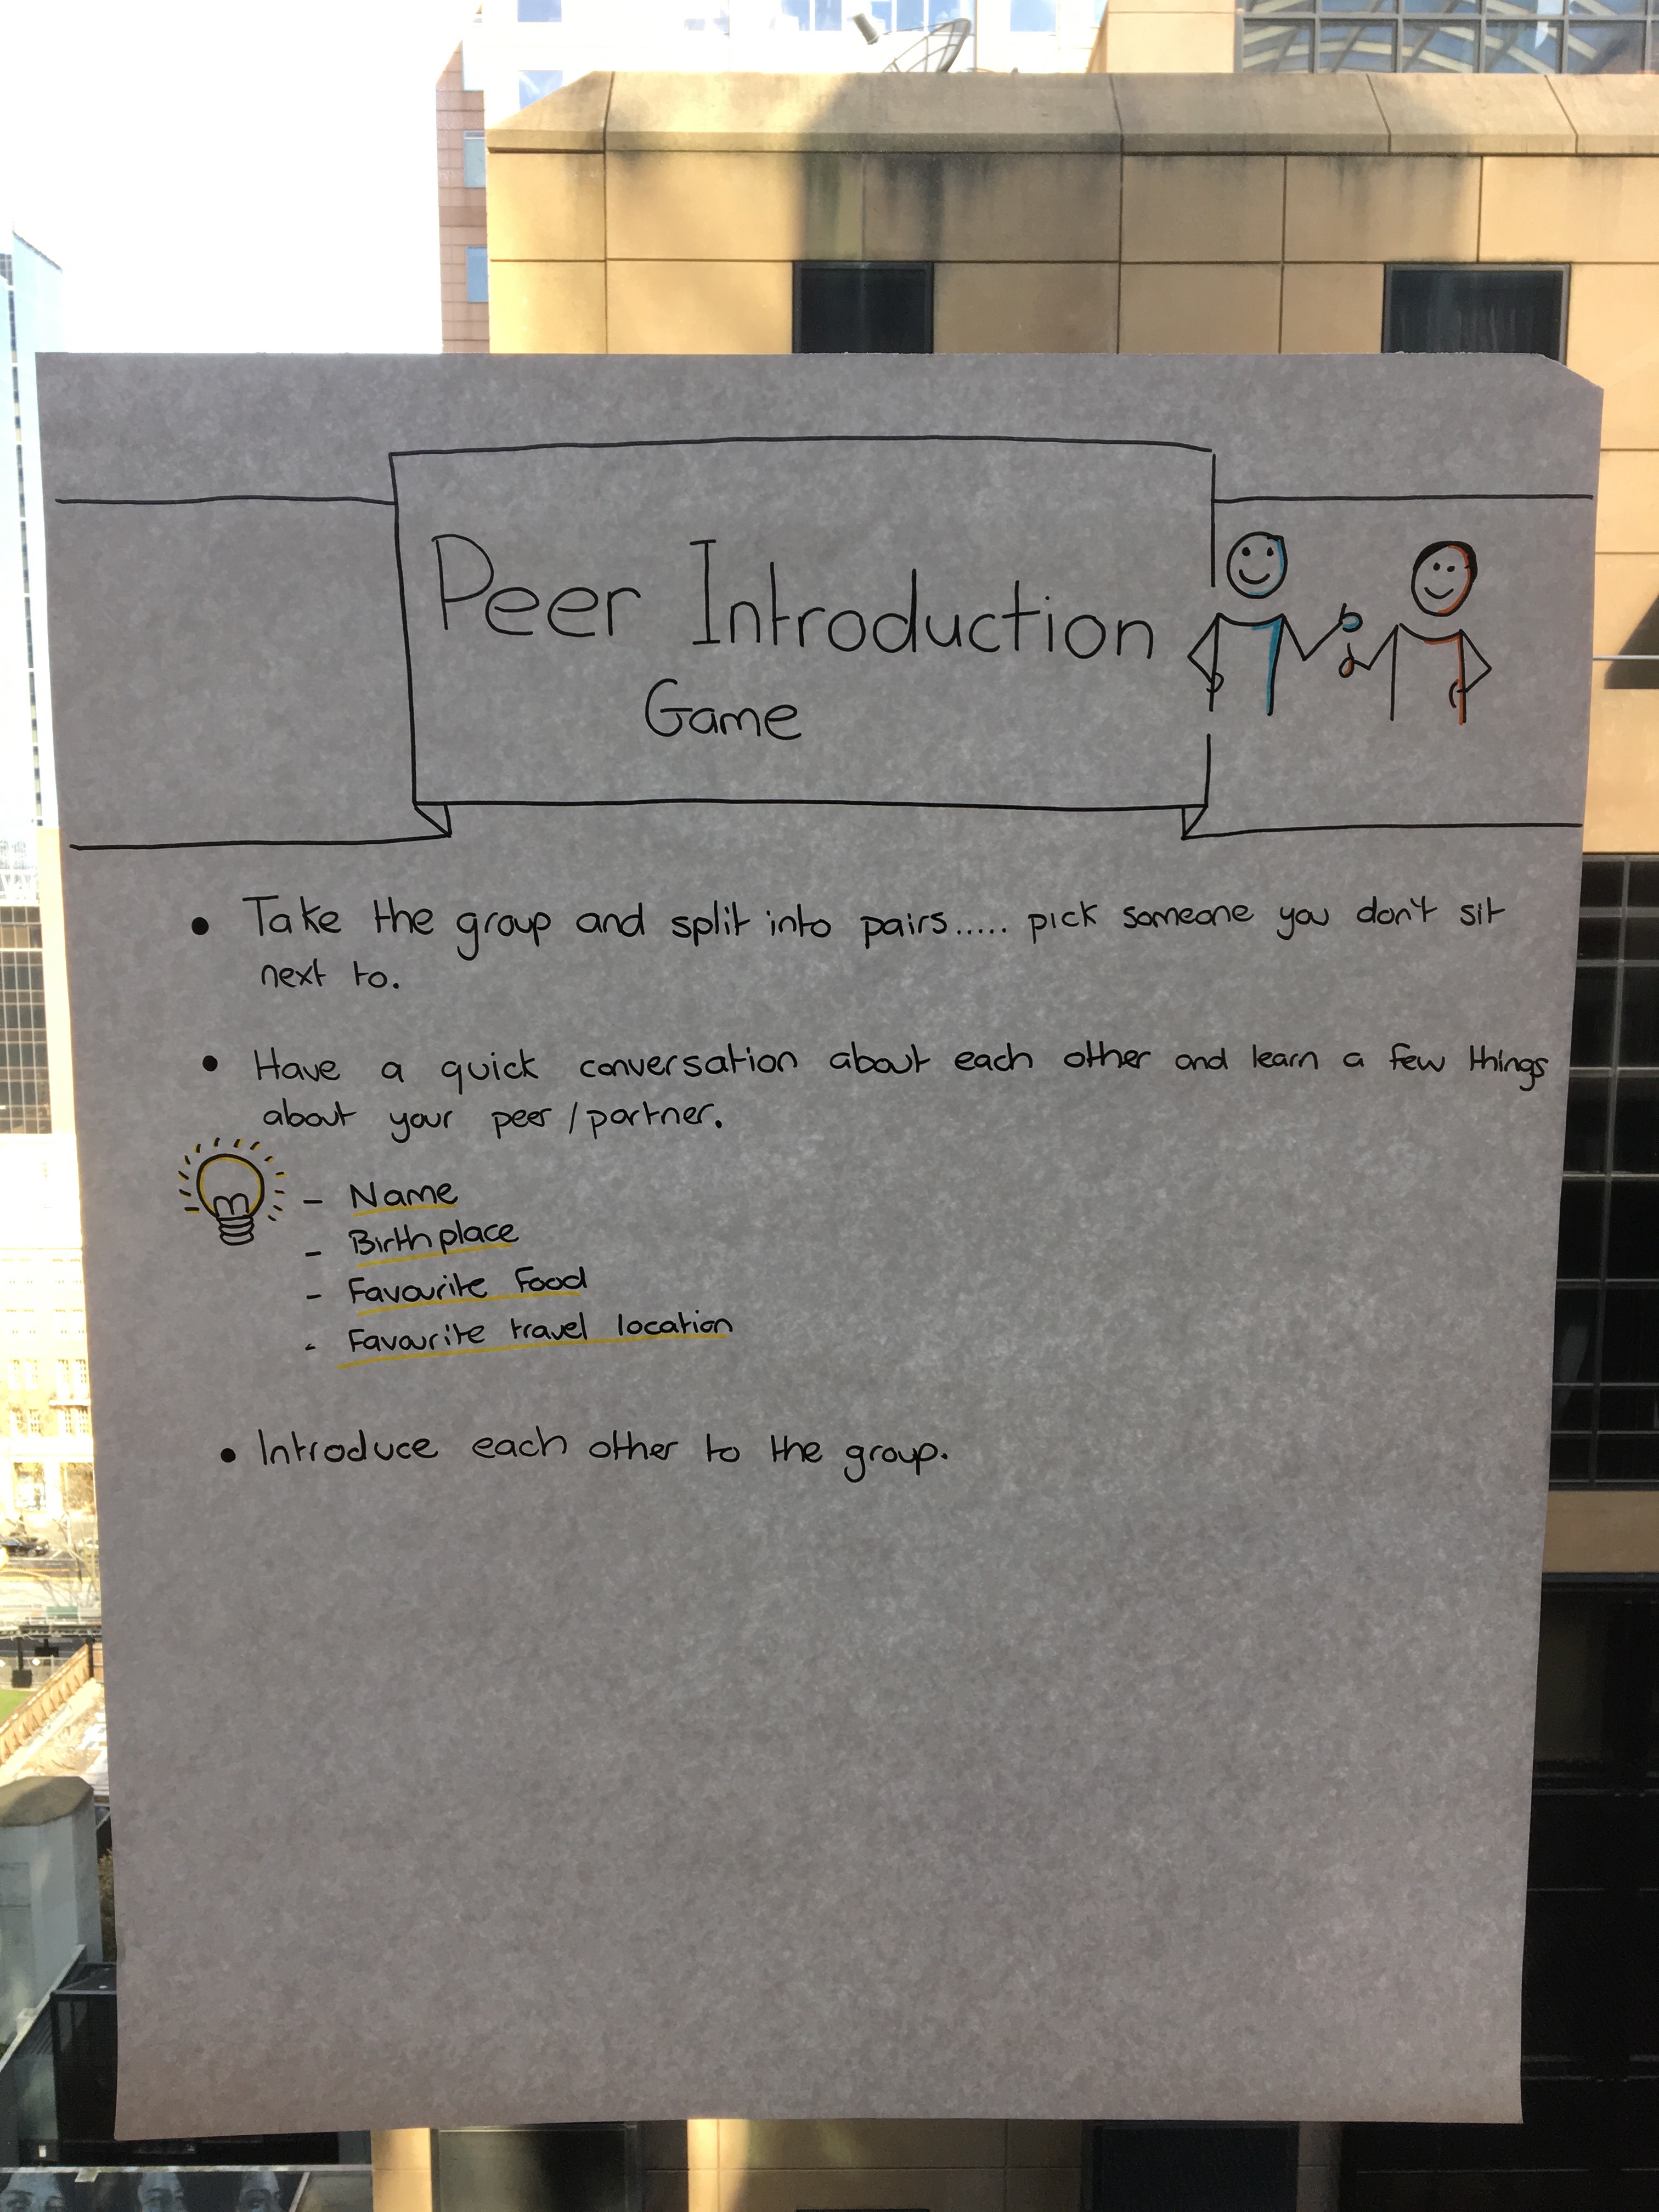 Peer Introduction
Game
• Take the group and split into pairs..... pick someone you don't sit
next to.
• Have a quick conversation about each other and learn a few things
about your peer/partner.
- Name
- Birthplace
- Favourite Food
- Favourite travel location
• Introduce each other to the group.